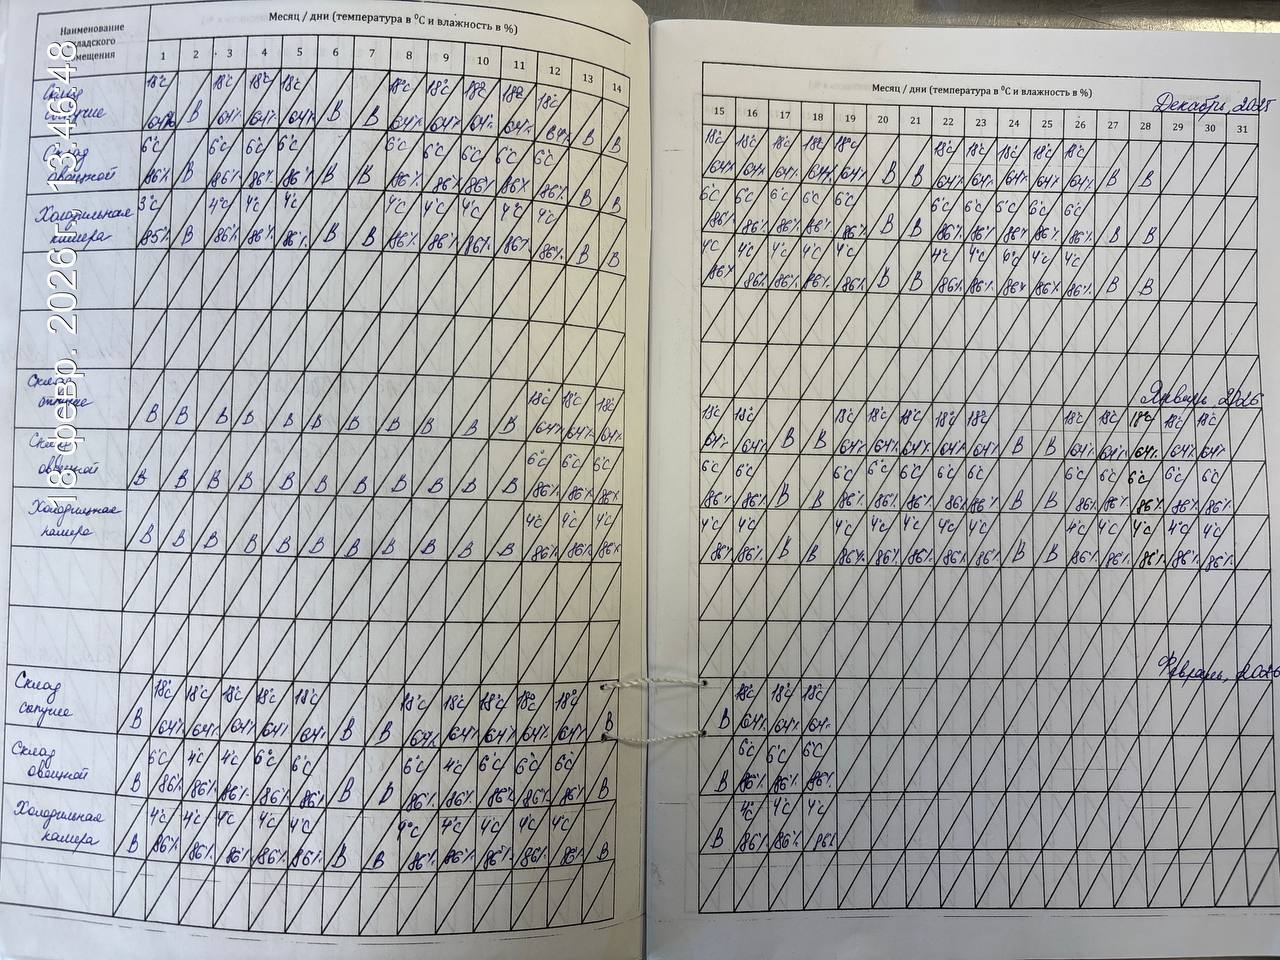 18 февр. 2026 г., 13:46:48
Наименование складского помещения
Месяц / дни (температура в ⁰С и влажность в %)
1 2 3 4 5 6 7 8 9 10 11 12 13 14
Склад сыпучие 18°C 64% В 18°C 64% 18°C 64% 18°C 64% В В 18°C 64% 18°C 64% 18°C 64% 18°C 64% 18°C 64% В В
Склад овощной 6°C 86% В 6°C 86% 6°C 86% 6°C 86% В В 6°C 86% 6°C 86% 6°C 86% 6°C 86% 6°C 86% В В
Холодильная камера 3°C 85% В 4°C 86% 4°C 86% 4°C 86% В В 4°C 86% 4°C 86% 4°C 86% 4°C 86% 4°C 86% В В
Склад сыпучие В В В В В В В В В В В 18°C 64% 18°C 64% 18°C 64%
Склад овощной В В В В В В В В В В В 6°C 86% 6°C 86% 6°C 86%
Холодильная камера В В В В В В В В В В В 4°C 86% 4°C 86% 4°C 86%
Склад сыпучие В 18°C 64% 18°C 64% 18°C 64% 18°C 64% 18°C 64% В В 18°C 64% 18°C 64% 18°C 64% 18°C 64% 18°C 64% В
Склад овощной В 6°C 86% 4°C 86% 4°C 86% 6°C 86% 6°C 86% В В 6°C 86% 4°C 86% 6°C 86% 6°C 86% 6°C 86% В
Холодильная камера В 4°C 86% 4°C 86% 4°C 86% 4°C 86% 4°C 86% В В 4°C 86% 4°C 86% 4°C 86% 4°C 86% 4°C 86% В
Месяц / дни (температура в ⁰С и влажность в %)
Декабрь, 2025
15 16 17 18 19 20 21 22 23 24 25 26 27 28 29 30 31
18°C 64% 18°C 64% 18°C 64% 18°C 64% 18°C 64% В В 18°C 64% 18°C 64% 18°C 64% 18°C 64% 18°C 64% В В
6°C 86% 6°C 86% 6°C 86% 6°C 86% 6°C 86% В В 6°C 86% 6°C 86% 6°C 86% 6°C 86% 6°C 86% В В
4°C 86% 4°C 86% 4°C 86% 4°C 86% 4°C 86% В В 4°C 86% 4°C 86% 86% 4°C 86% 4°C 86% В В
Январь 2026
18°C 64% 18°C 64% В В 18°C 64% 18°C 64% 18°C 64% 18°C 64% 18°C 64% В В 18°C 64% 18°C 64% 18°C 64% 18°C 64% 18°C 64%
6°C 86% 6°C 86% В В 6°C 86% 6°C 86% 6°C 86% 6°C 86% 6°C 86% В В 6°C 86% 6°C 86% 6°C 86% 6°C 86% 6°C 86%
4°C 86% 4°C 86% В В 4°C 86% 4°C 86% 4°C 86% 4°C 86% 4°C 86% В В 4°C 86% 4°C 86% 4°C 86% 4°C 86% 4°C 86%
Февраль, 2026
В 18°C 64% 18°C 64% 18°C 64%
В 6°C 86% 6°C 86% 6°C 86%
В 4°C 86% 4°C 86% 4°C 86%